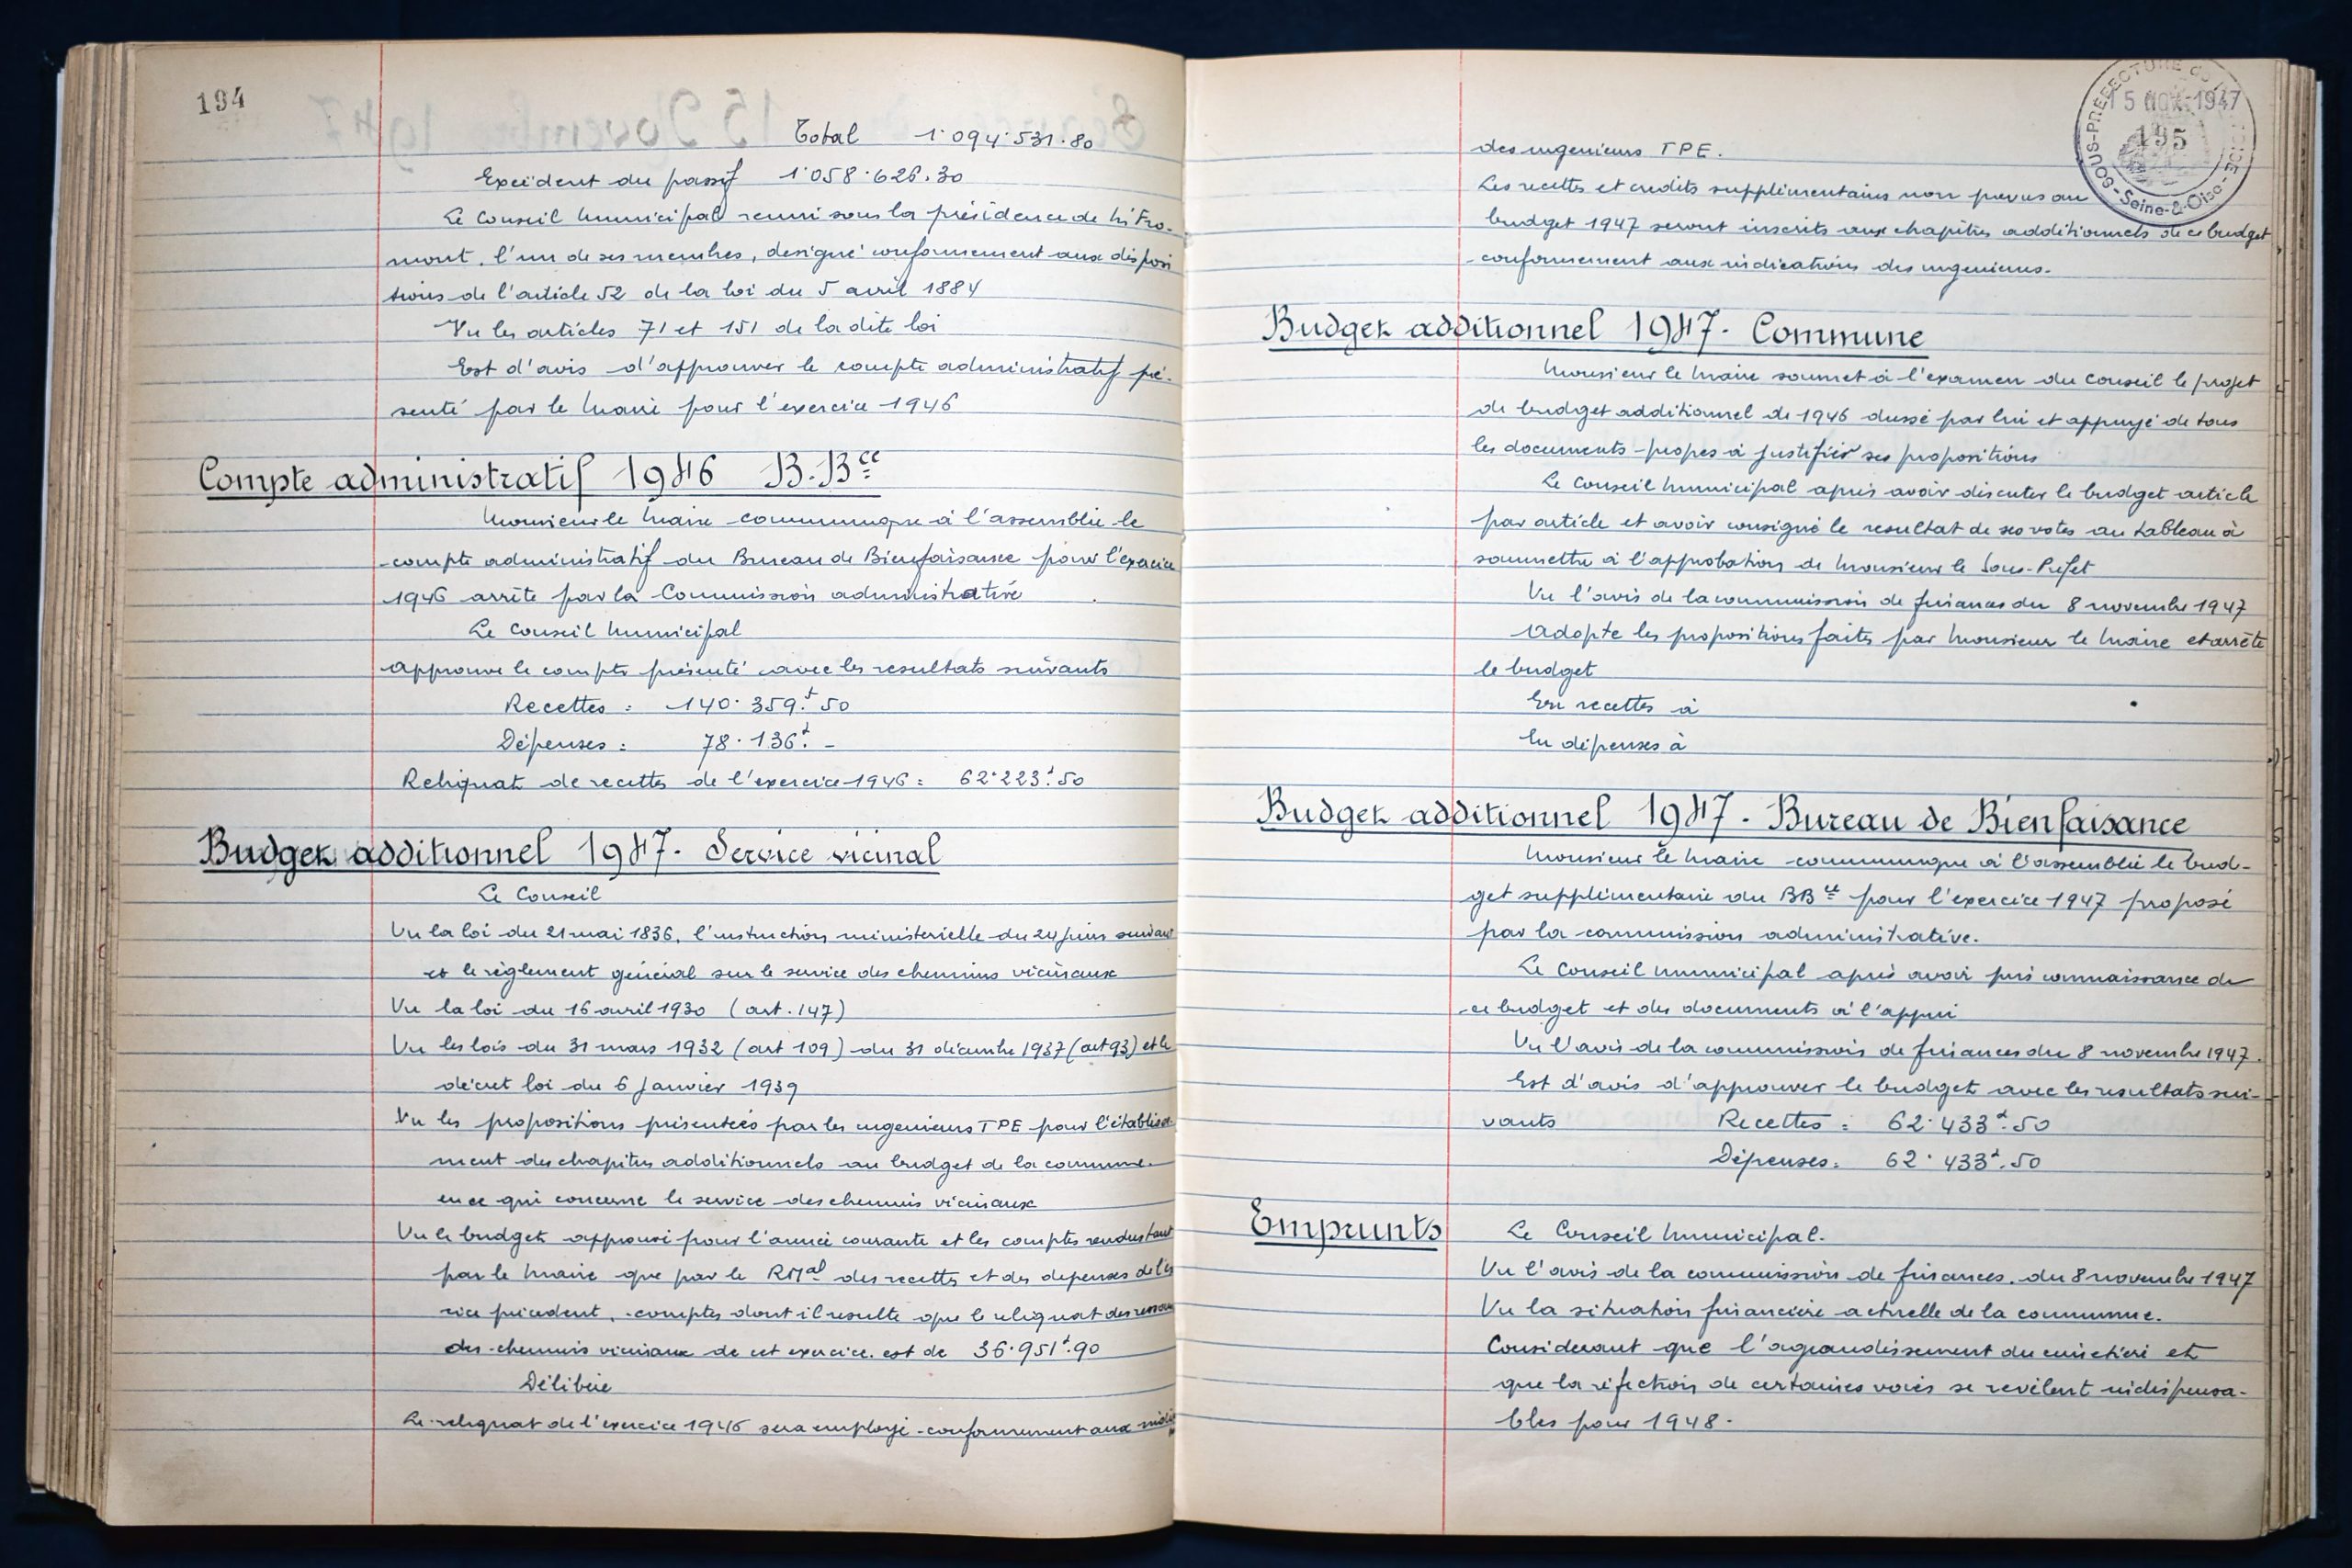 194
Total 1.094.531.80
Excédent du passif 1.058.626.30
Le Conseil Municipal reuni sous la présidence de Mr Fro-
mont, l'un de ses membres, designé conformement aux disposi
tions de l'article 52 de la loi du 5 avril 1884
Vu les articles 71 et 151 de la dite loi
Est d'avis d'approuver le compte administratif pré-
senté par le Maire pour l'exercice 1946
Compte administratif 1946 B.Bce
Monsieur le Maire communique à l'assemblée le
compte administratif du Bureau de Bienfaisance pour l'exercice
1946 arrêté par la Commission administrative
Le Conseil Municipal
approuve le compte présenté avec les resultats suivants
Recettes : 140.359f.50
Dépenses : 78.136f. -
Reliquat de recettes de l'exercice 1946 : 62.223f.50
Budget additionnel 1947 - Service vicinal
Le Conseil
Vu la loi du 21 mai 1836, l'instruction ministerielle du 24 juin suivant
et le règlement général sur le service des chemins vicinaux
Vu la loi du 16 avril 1930 (art. 147)
Vu les lois du 31 mars 1932 (art 109) du 31 décembre 1937 (art 93) et le
décret loi du 6 Janvier 1939
Vu les propositions présentées par les ingenieurs TPE pour l'établisse
ment des chapitres additionnels au budget de la commune.
en ce qui concerne le service des chemins vicinaux
Vu le budget approuvé pour l'année courante et les comptes rendus tant
par le Maire que par le RMal des recettes et des depenses de l'
cice précedent, comptes dont il resulte que le reliquat des
des chemins vicinaux de cet exercice est de 36.951f.90
Délibère
Le reliquat de l'exercice 1946 sera employé conformement aux
SOUS-PRÉFECTURE
15 NOV 1947
195
Seine-&-Oise
des ingenieurs TPE.
Les recettes et credits supplémentaires non prevus au
budget 1947 seront inscrits aux chapitres additionnels de ce budget
conformement aux indications des ingenieurs.
Budget additionnel 1947 - Commune
Monsieur le Maire soumet à l'examen du Conseil le projet
de budget additionnel de 1946 dressé par lui et appuyé de tous
les documents propres à justifier ses propositions
Le Conseil Municipal après avoir discuter le budget article
par article et avoir consigné le resultat de ses votes au tableau à
soumettre à l'approbation de Monsieur le Sous-Prefet
Vu l'avis de la commission de finances du 8 novembre 1947
Adopte les propositions faites par Monsieur le Maire et arrête
le budget
En recettes à
En dépenses à
Budget additionnel 1947 - Bureau de Bienfaisance
Monsieur le Maire communique à l'assemblée le bud-
get supplémentaire du BBce pour l'exercice 1947 proposé
par la commission administrative.
Le Conseil Municipal après avoir pris connaissance de
ce budget et des documents à l'appui
Vu l'avis de la commission de finances du 8 novembre 1947.
Est d'avis d'approuver le budget avec les resultats sui-
vants Recettes : 62.433f.50
Dépenses : 62.433f.50
Emprunts Le Conseil Municipal.
Vu l'avis de la commission de finances, du 8 novembre 1947
Vu la situation financière actuelle de la commune.
Considerant que l'agrandissement du cimetière et
que la réfection de certaines voies se revèlent indispensa-
bles pour 1948.